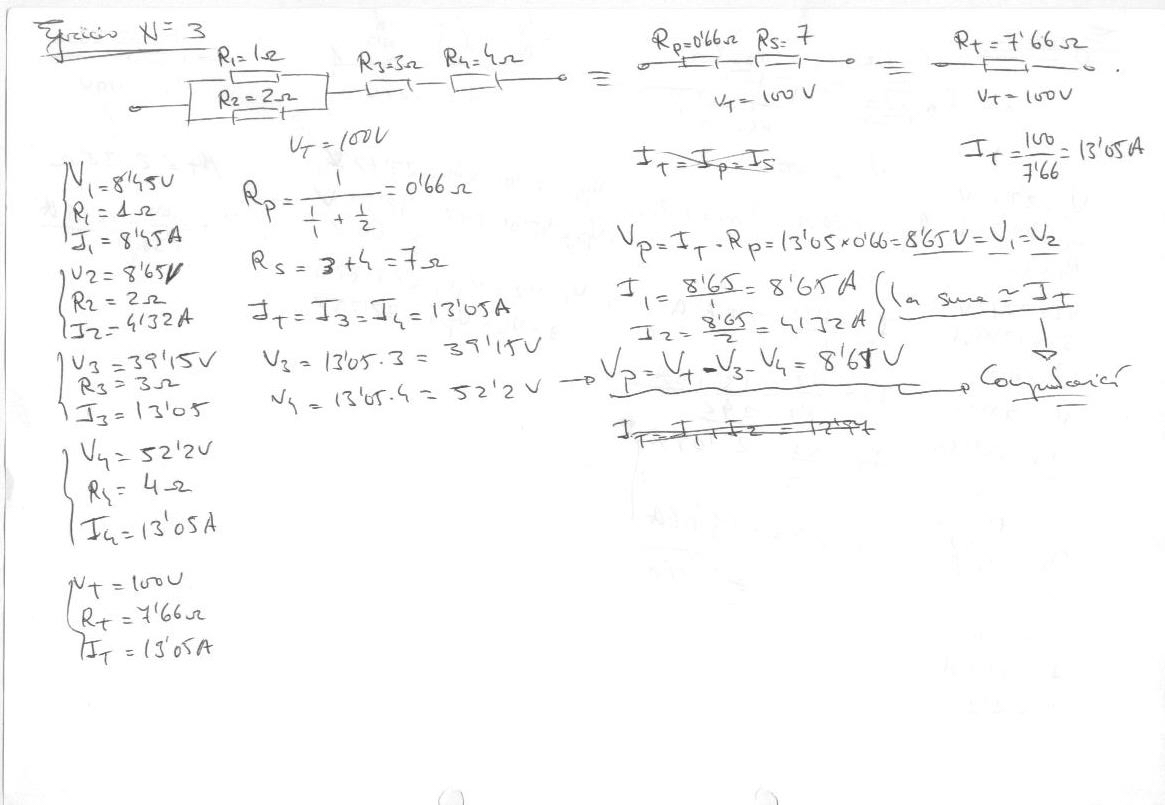 Ejercicio Nº 3
R1=1Ω
R2=2Ω
R3=3Ω R4=4Ω
VT=100V
≡
Rp=0'66Ω Rs=7
VT=100V
≡
Rt=7'66Ω
VT=100V
IT=Ip=Is
IT=100/7'66=13'05A
V1=8'45V
R1=1Ω
I1=8'45A
V2=8'65V
R2=2Ω
I2=4'32A
V3=39'15V
R3=3Ω
I3=13'05
V4=52'2V
R4=4Ω
I4=13'05A
VT=100V
RT=7'66Ω
IT=13'05A
Rp=1/(1/1+1/2)=0'66Ω
Rs=3+4=7Ω
IT=I3=I4=13'05A
V3=13'05·3=39'15V
V4=13'05·4=52'2V
Vp=IT·Rp=13'05×0'66=8'65V=V1=V2
I1=8'65/1=8'65A
I2=8'65/2=4'32A
la suma ≃ IT
Vp=VT-V3-V4=8'65V → Comprobación
IT=I1+I2=12'97